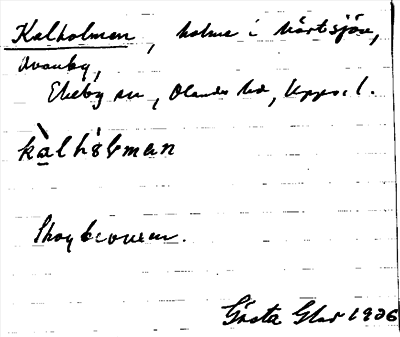 Kalholmen, holme i Vårtsjön,
Ekeby sn, Olands hd, Upps. l.
kàlhòlmen
Skogbevuxen.
Gösta Glas 1906